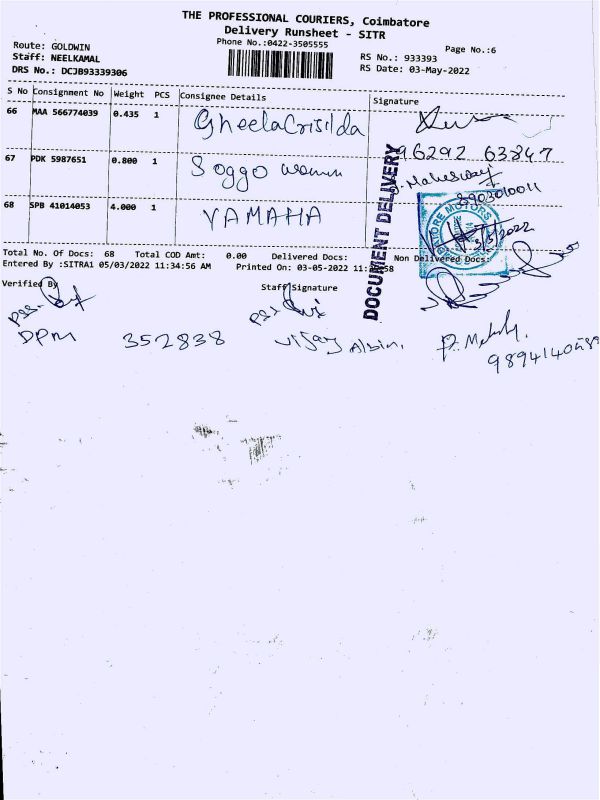 THE PROFESSIONAL COURIERS, Coimbatore
Delivery Runsheet - SITR
Phone No.:0422-3505555
Page No.:6
Route: GOLDWIN
Staff: NEELKAMAL
DRS No.: DCJB93339306
RS No.: 933393
RS Date: 03-May-2022
S No Consignment No Weight PCS Consignee Details Signature
66 MAA 566774039 0.435 1 GheelaCrisilda
96292 63847
67 PDK 5987651 0.800 1 Soggo women
P. Maheswary
8903010011
68 SPB 41014053 4.000 1 YAMAHA
MOTORS
3/5/2022
DOCUMENT DELIVERY
Total No. Of Docs: 68 Total COD Amt: 0.00 Delivered Docs: Non Delivered Docs:
Entered By :SITRA1 05/03/2022 11:34:56 AM Printed On: 03-05-2022 11: :58
Verified By Staff Signature
DPM 352838 Vijay Albin.